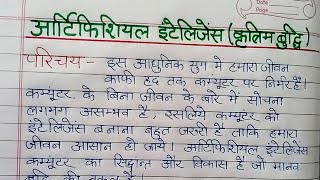 Date
Page
आर्टिफिशियल इंटेलिजेंस (कृत्रिम बुद्धि)
परिचय:- इस आधुनिक युग मे हमारा जीवन
काफी हद तक कम्प्यूटर पर निर्भर है।
कम्प्यूटर के बिना जीवन के बारे में सोचना
लगभग असम्भव है, इसलिये कम्प्यूटर को
इंटेलिजेंस बनाना बहुत जरूरी है ताकि हमारा
जीवन आसान हो जाये। आर्टिफिशियल इंटेलिजेंस
कम्प्यूटर का सिद्धान्त और विकास है जो मानव